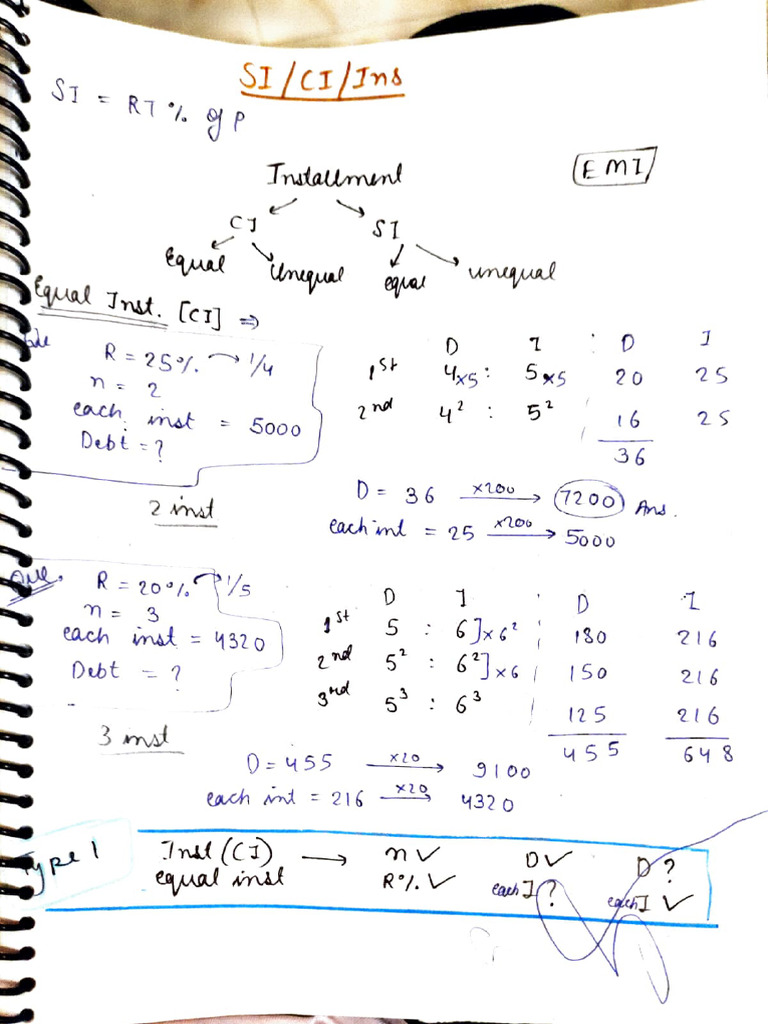 SI/CI/Ins
SI = RT % of P
Installment
EMI
CI SI
Equal Unequal equal unequal
Equal Inst. [CI] ⇒
R = 25% → 1/4
n = 2
each inst = 5000
Debt = ?
2 inst
D I : D I
1st 4×5 : 5×5 20 25
2nd 4² : 5² 16 25
36
D = 36 ×200→ 7200 Ans.
each int = 25 ×200→ 5000
Que.
R = 20% → 1/5
n = 3
each inst = 4320
Debt = ?
3 inst
D I D I
1st 5 : 6]×6² 180 216
2nd 5² : 6²]×6 150 216
3rd 5³ : 6³ 125 216
455 648
D = 455 ×20→ 9100
each int = 216 ×20→ 4320
Type 1
Inst (CI) → n✓ D✓ D ?
equal inst R%✓ each I ? each I ✓